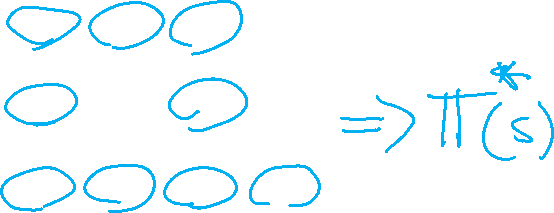 ⇒ π*(s)